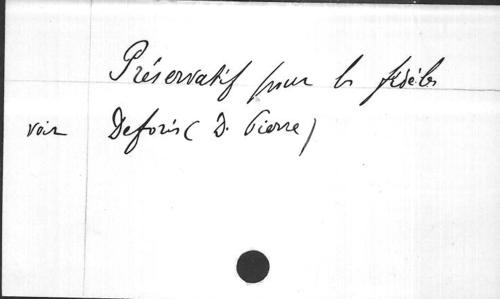 Préservatif pour les fidèles
voir Deforis (D. Pierre)